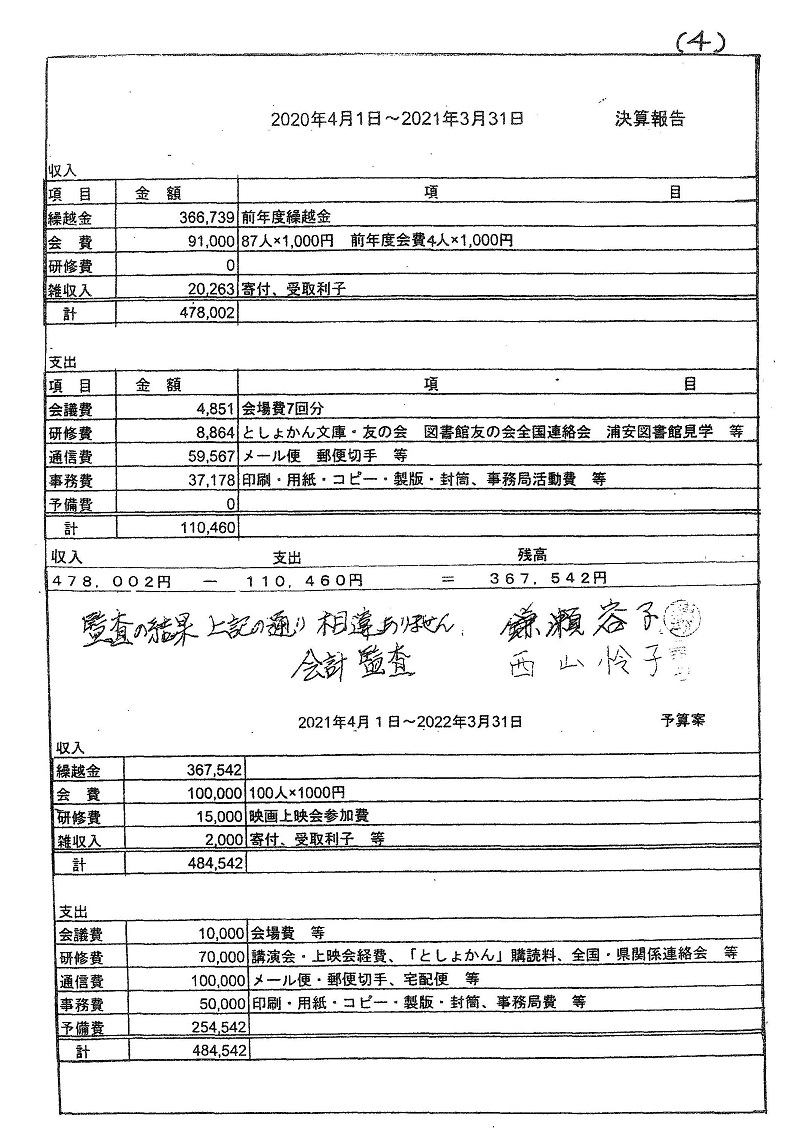 (4)
2020年4月1日～2021年3月31日 決算報告
収入
項 目 金 額 項 目
繰越金 366,739 前年度繰越金
会 費 91,000 87人×1,000円 前年度会費4人×1,000円
研修費 0
雑収入 20,263 寄付、受取利子
計 478,002
支出
項 目 金 額 項 目
会議費 4,851 会場費7回分
研修費 8,864 としょかん文庫・友の会 図書館友の会全国連絡会 浦安図書館見学 等
通信費 59,567 メール便 郵便切手 等
事務費 37,178 印刷・用紙・コピー・製版・封筒、事務局活動費 等
予備費 0
計 110,460
収入 支出 残高
478,002円 － 110,460円 ＝ 367,542円
監査の結果 上記の通り 相違ありません 鎌瀬容子
会計監査 西山怜子
2021年4月1日～2022年3月31日 予算案
収入
繰越金 367,542
会 費 100,000 100人×1000円
研修費 15,000 映画上映会参加費
雑収入 2,000 寄付、受取利子 等
計 484,542
支出
会議費 10,000 会場費 等
研修費 70,000 講演会・上映会経費、「としょかん」購読料、全国・県関係連絡会 等
通信費 100,000 メール便・郵便切手、宅配便 等
事務費 50,000 印刷・用紙・コピー・製版・封筒、事務局費 等
予備費 254,542
計 484,542